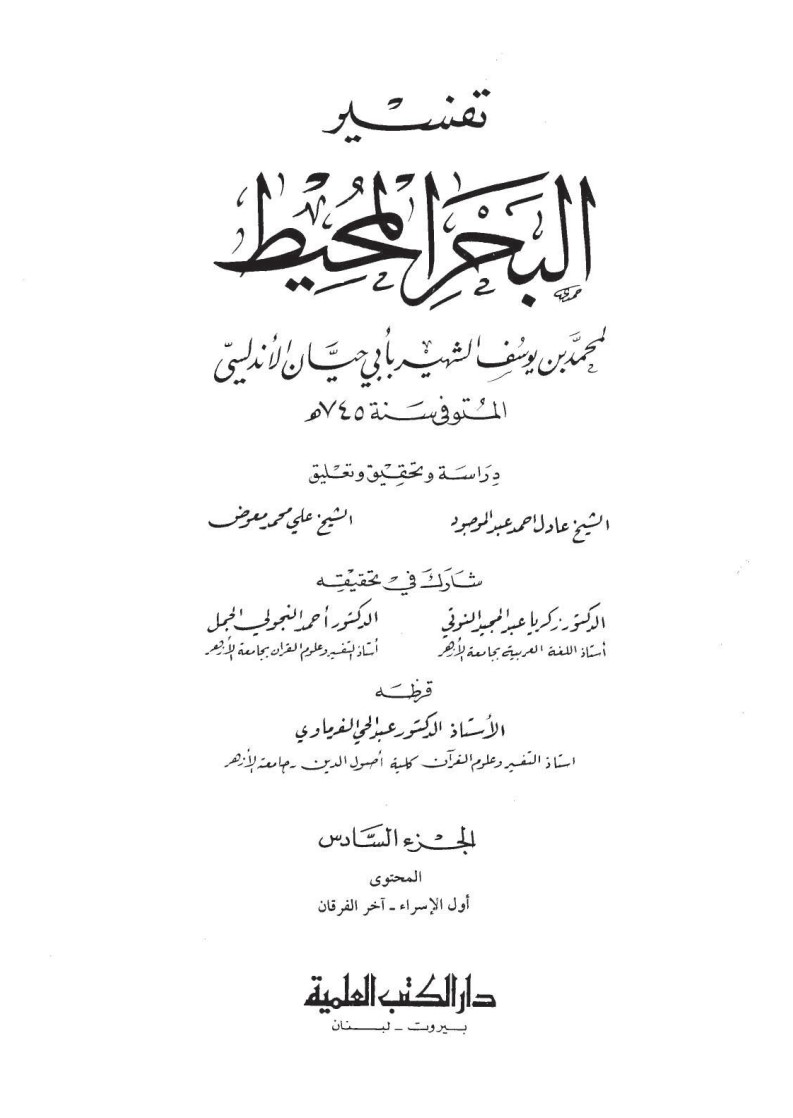 تفسير
البَحْر المُحِيط
حمدي
لمحمَّد بن يوسُف الشهير بأبي حيَّان الأندلسيّ
المتُوفى سَنة ٧٤٥هـ
دِرَاسَة وتحقيْق وتعليق
الشيخ عادل احمد عبد الموجود الشيخ علي محمد معوض
شَارَك في تحقيقِه
الدكتور زكريا عبد المجيد النوتي الدكتور أحمد النجولي الجمل
أستاذ اللغة العربية بجامعة الأزهر أستاذ التفسير وعلوم القرآن بجامعة الأزهر
قرظَه
الأستاذ الدكتور عبد الحي الفرماوي
استاذ التفسير وعلوم القرآن كلية أصول الدين جامعة الأزهر
الجزء السَّادس
المحتوى
أول الإسراء - آخر الفرقان
دار الكتب العلمية
بيروت - لبنان